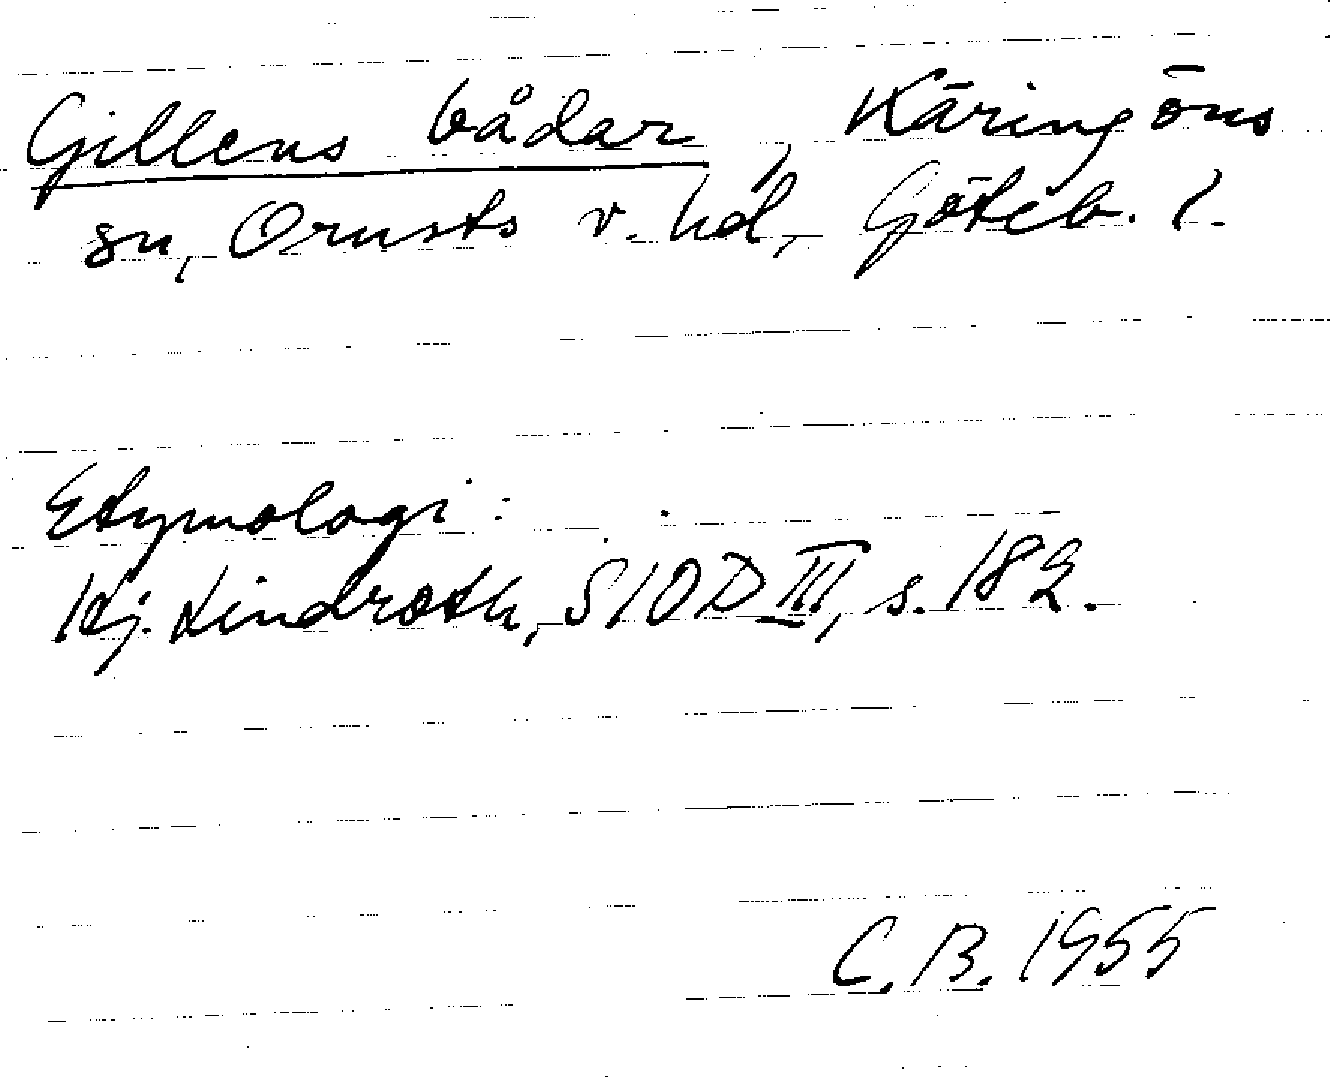 Gillens bådar, Käringöns
sn, Orusts v. hd, Göteb. l.
Etymologi:
Hj. Lindroth, SIOD III, s. 182.
C. B. 1955